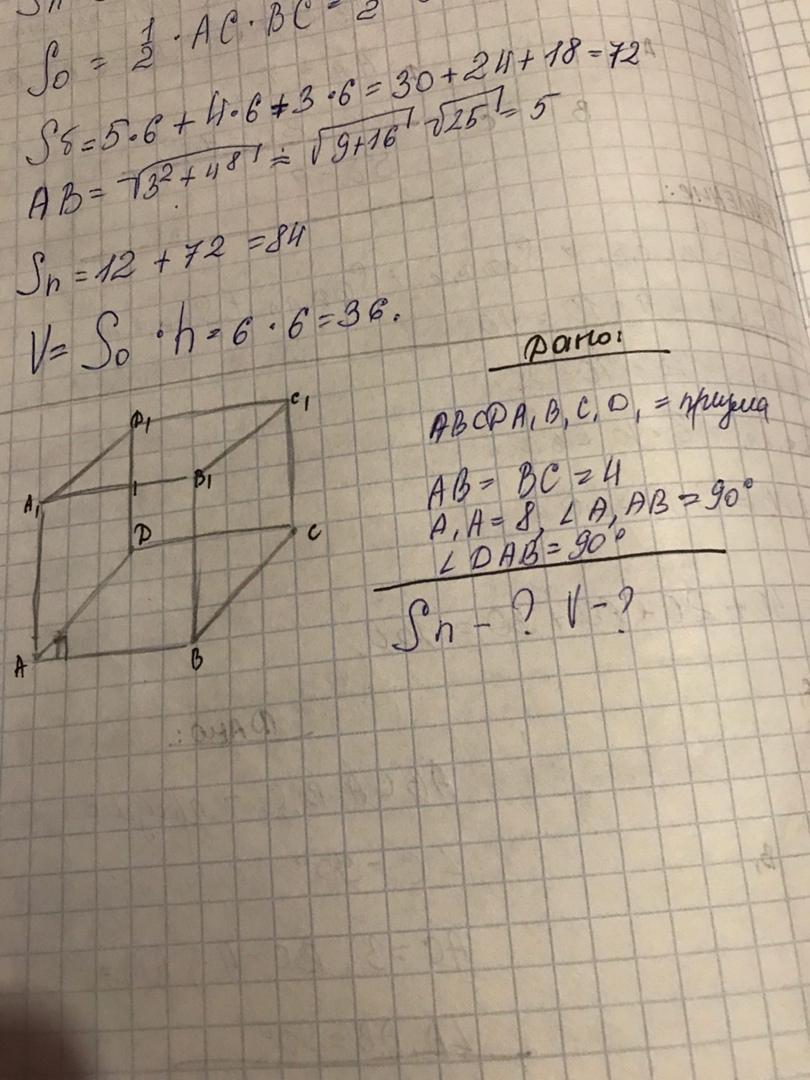 S₀ = 1/2 · AC · BC = 2
Sδ = 5·6 + 4·6 + 3·6 = 30 + 24 + 18 = 72
AB = √3² + 4⁸ = √9+16 √25 = 5
Sп = 12 + 72 = 84
V = S₀ · h = 6 · 6 = 36.
Дано:
ABCD A₁B₁C₁D₁ = призма
AB = BC = 4
A₁A = 8, ∠A₁AB = 90°
∠DAB = 90°
Sп - ? V - ?
D₁
C₁
A₁
B₁
D
C
A
B